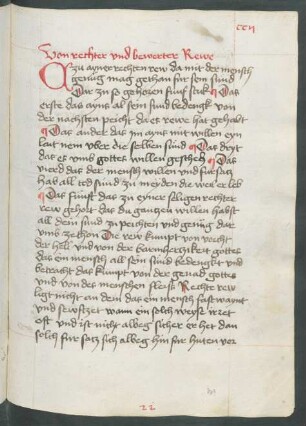 ccii
Von rechter und bewerter Rewe
Czu ayner rechten rew da mit der mensch
genug mag gethan fur sein sund
Dar zu so gehoren funf stuk Das
erste das ayns al sein sund bedengk von
der nachsten peicht da er rewe hat gehabt
Das ander das im ayns mit willen eyn
lait nem uber die selben sund Das dryt
das es umb gottes willen gescheh Das
vierd das der mensch willen und fursatz
hab all tod sund zu meyden die weil er leb
Das funfft das zu eyner seligen rechter
rew gehort das du gantzen willen habst
all dein sund zu peichten und genug dar
umb ze thon Die rew kumpt von vorcht
der hell und von der barmhertzikeit gottes
das ein mensch all sein sund bedengkt und
betracht das kumpt von der genad gottes
und von des menschen fleiss Rechte rew
ligt nicht an dem das ein mensch fast waynt
und sewftzet wann ein solch weyse irret
oft und ist nicht albeg sicher er het dan
solch fur satz sich albeg hin fur huten vor
22